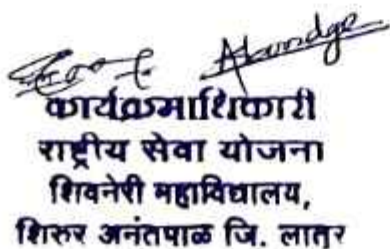 कार्यक्रमाधिकारी
राष्ट्रीय सेवा योजना
शिवनेरी महाविद्यालय,
शिरुर अनंतपाळ जि. लातुर